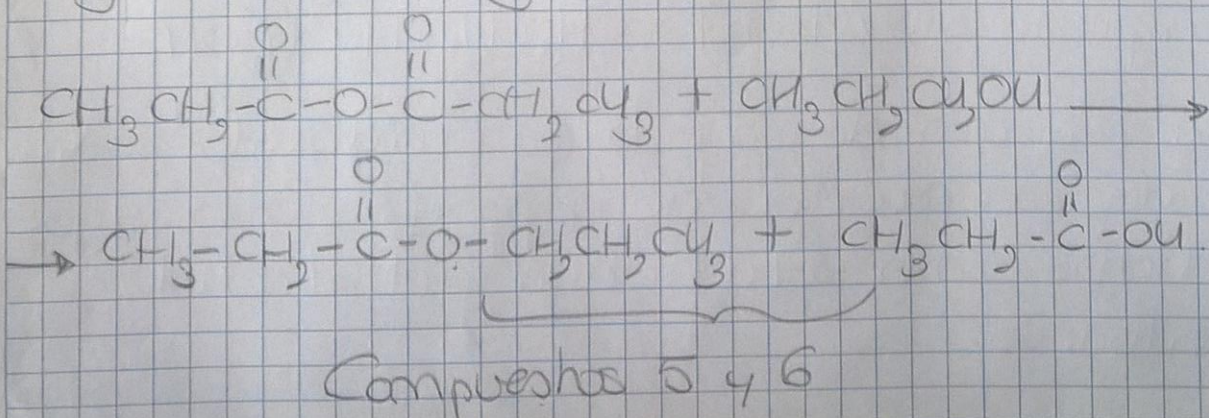 O O
|| ||
CH₃CH₂-C-O-C-CH₂CH₃ + CH₃CH₂CH₂OH →
O O
|| ||
→ CH₃-CH₂-C-O-CH₂CH₂CH₃ + CH₃CH₂-C-OH.
Compuestos 5 y 6